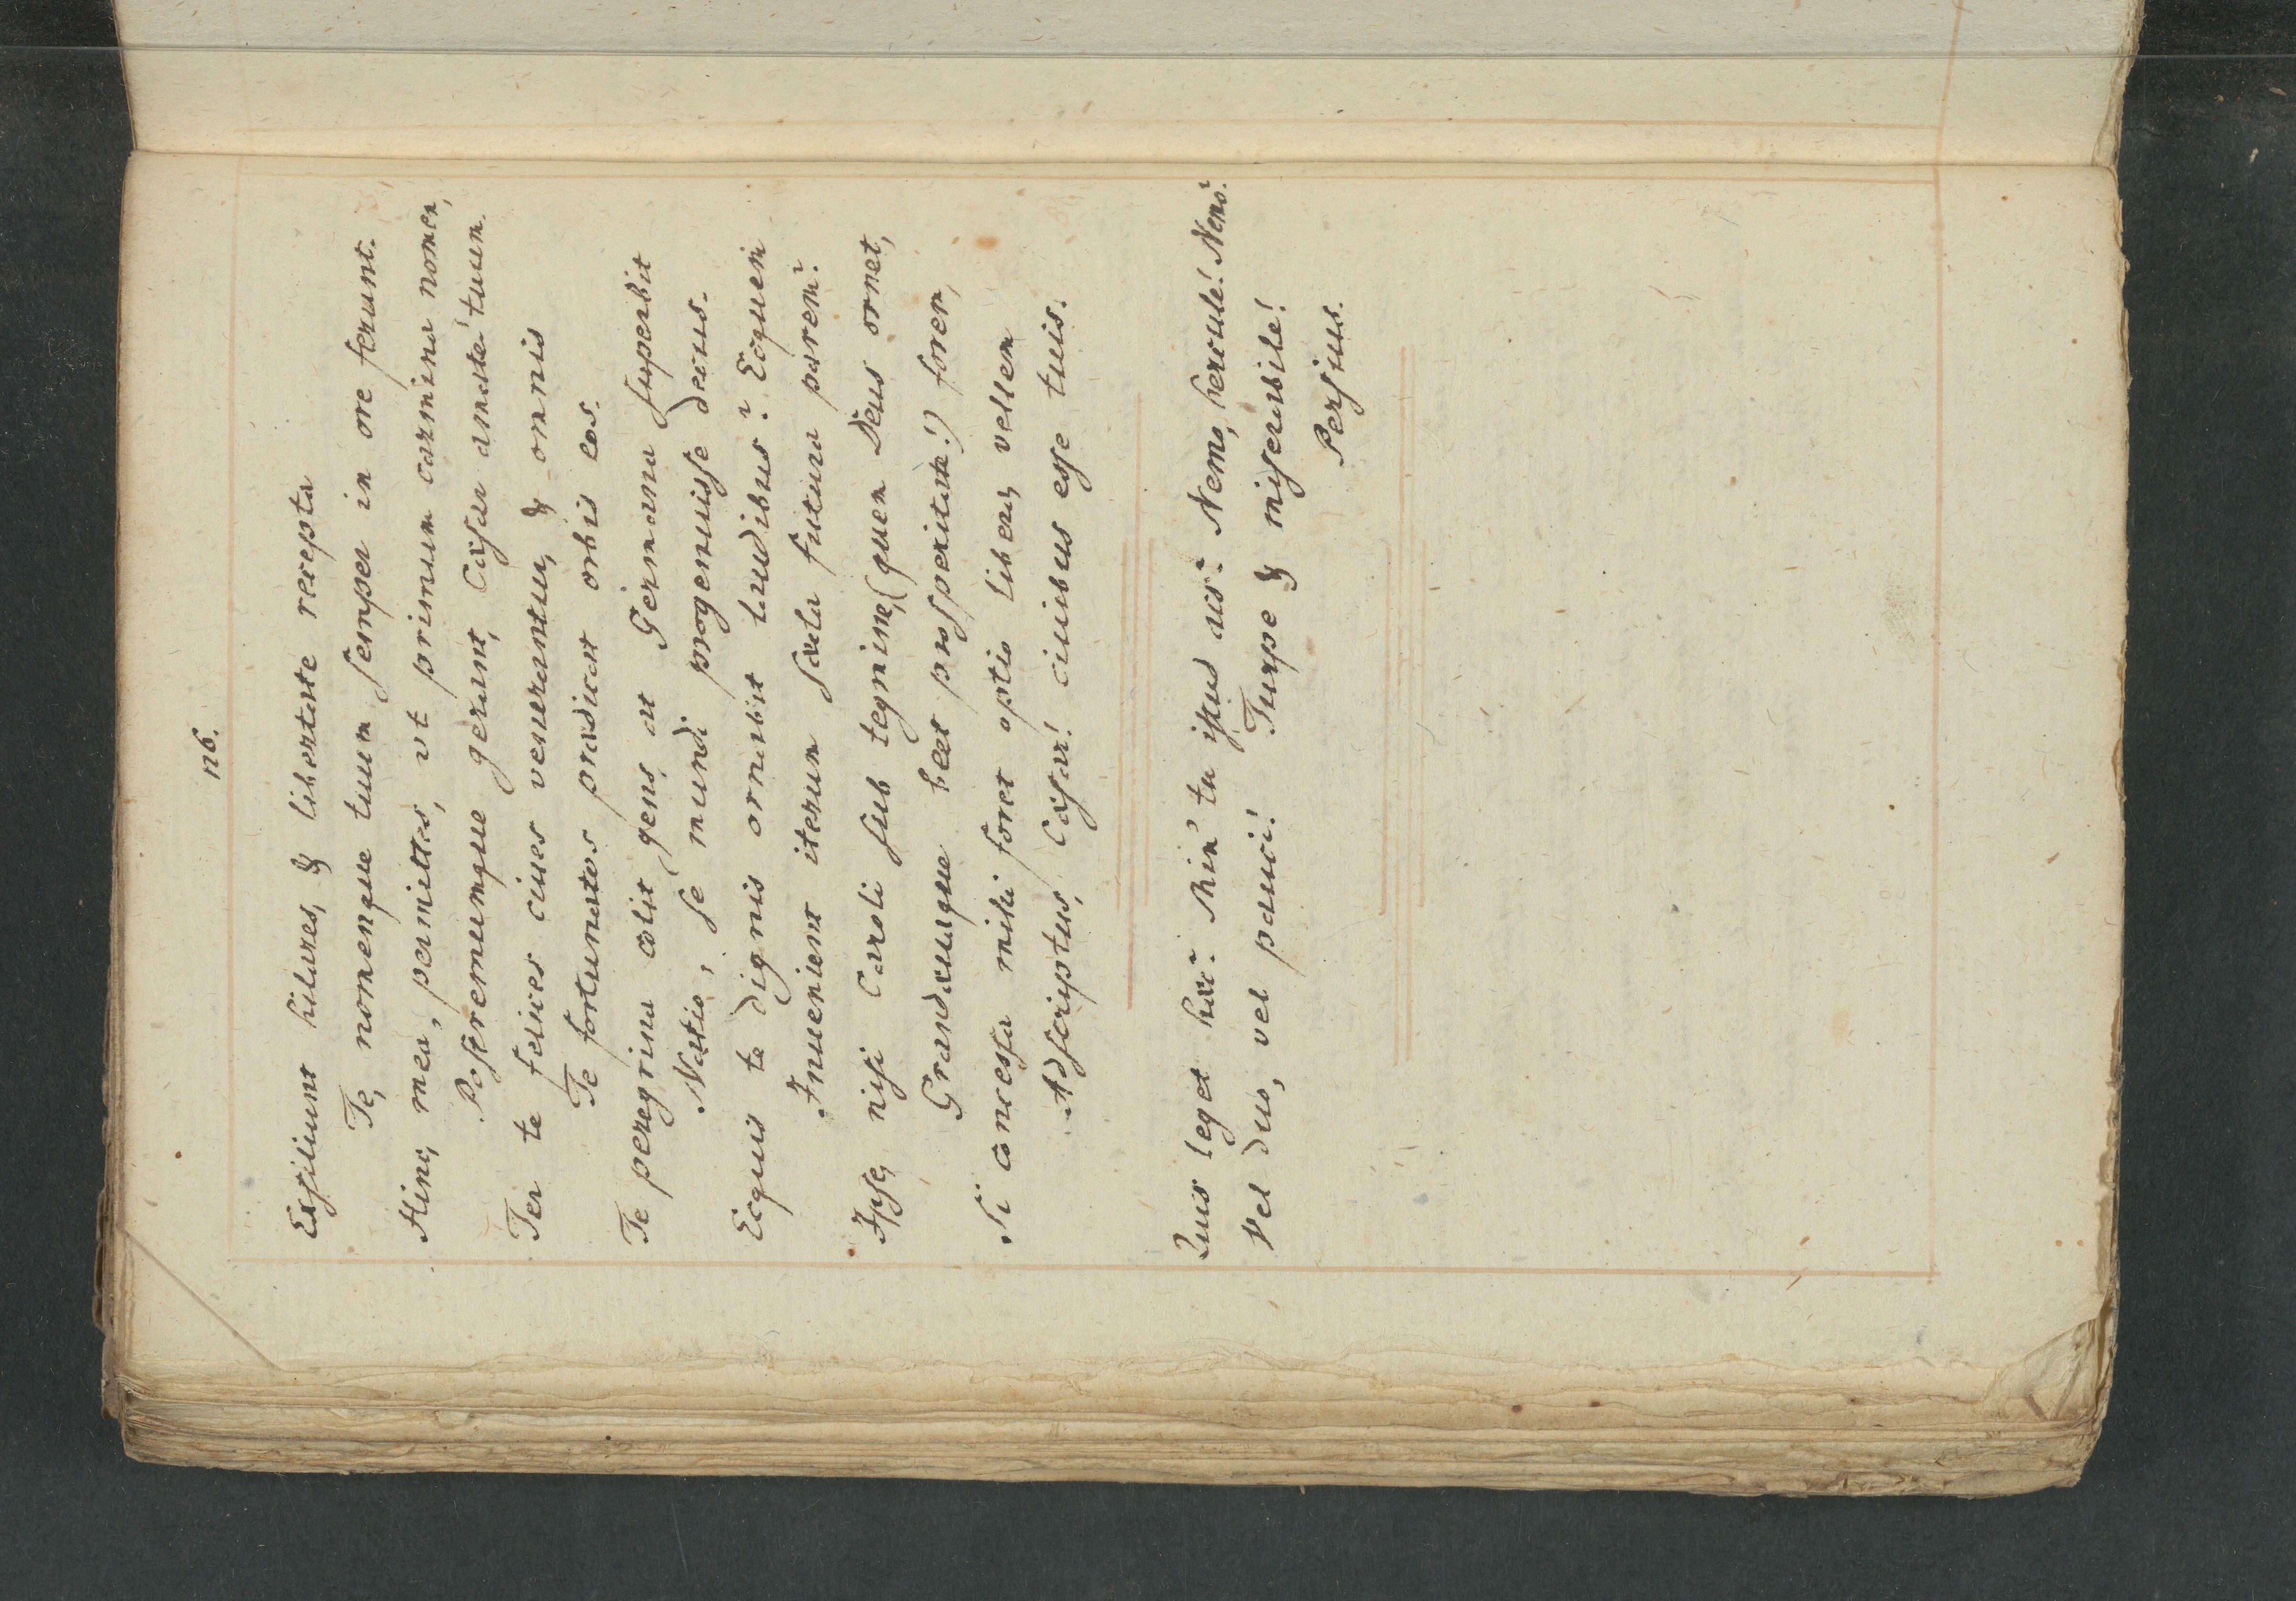 116.
Exsiliunt hilares, & libertate recepta
Te, nomenque tuum semper in ore ferunt.
Hinc, mea, permittas, ut primum carmina nomen,
Postremumque gerant, Cæsar amate! tuum.
Ter te felices cives venerantur, & omnis
Te fortunatos prædicat orbis eos.
Te peregrina colit gens, at Germana superbit
Natio, se mundi progenuisse decus.
Ecquis te dignis ornabit laudibus? Ecquem
Invenient iterum sæcla futura parem?
Ipse, nisi Caroli sub tegmine, (quem Deus ornet,
Grandævaque beet prosperitate!) forem,
Si concessa mihi foret optio libera, vellem
Adscriptus, Cæsar! civibus esse tuis.
Quis leget hæc? Min' tu istud ais? Nemo, hercule! Nemo?
Vel duo, vel pauci! Turpe & miserabile!
Persius.